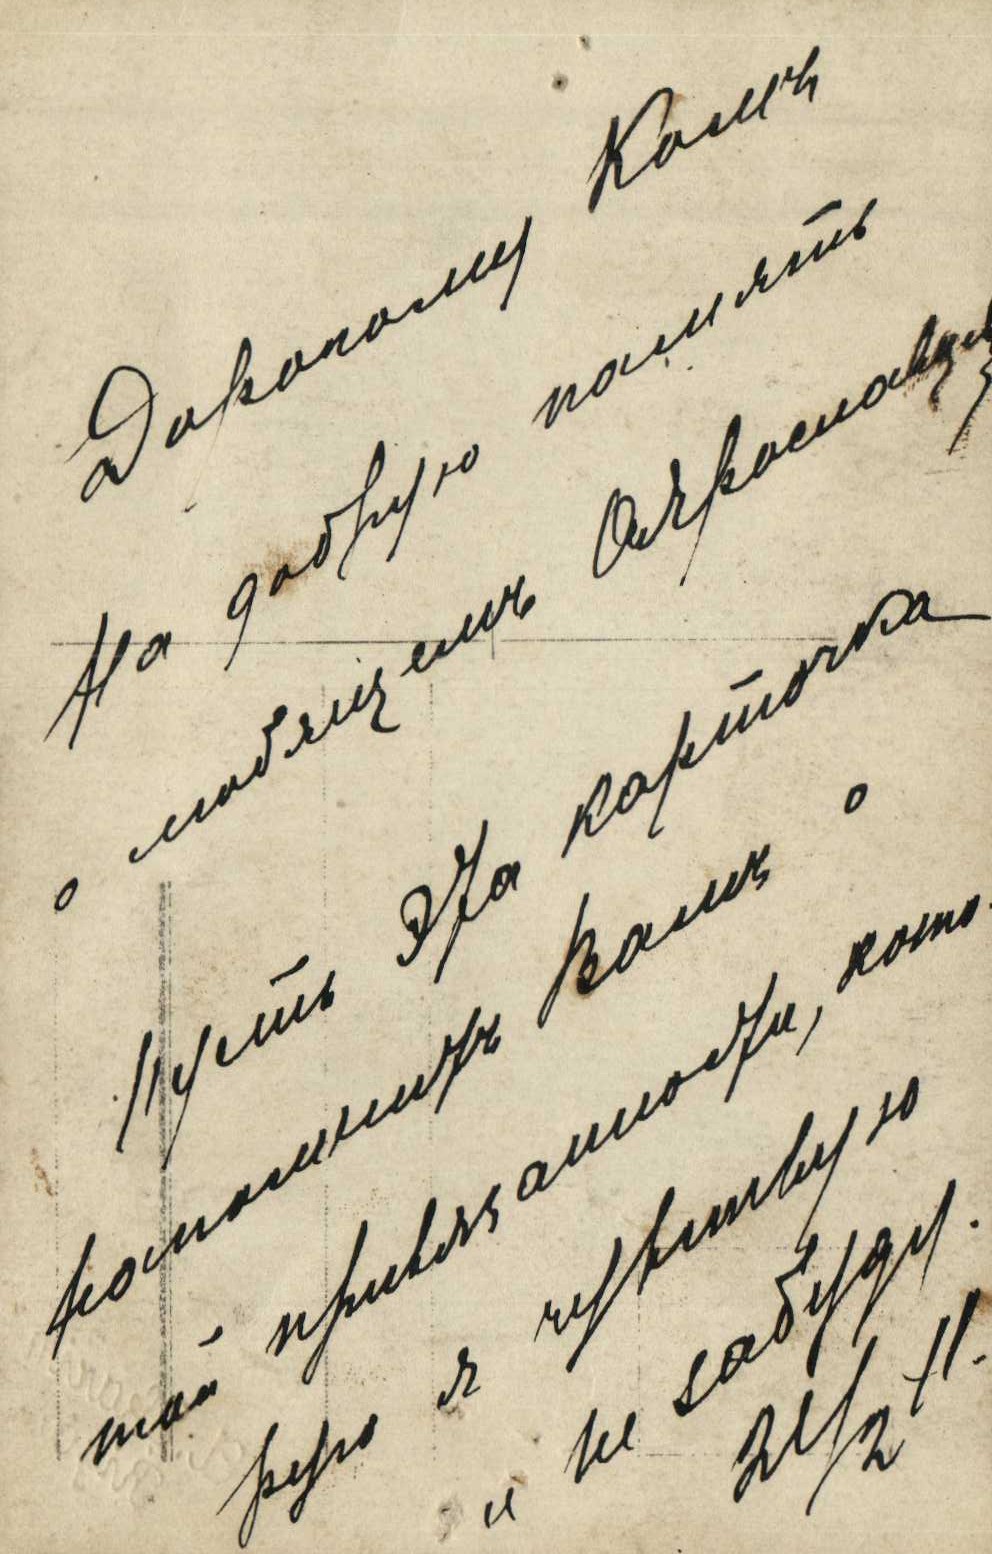 Дорогому Колѣ
На добрую память
о любящемъ
Пусть эта карточка
напомнитъ Вамъ о
той привязанности, кото-
рую я чувствую
и не забуду.
21/2 11.